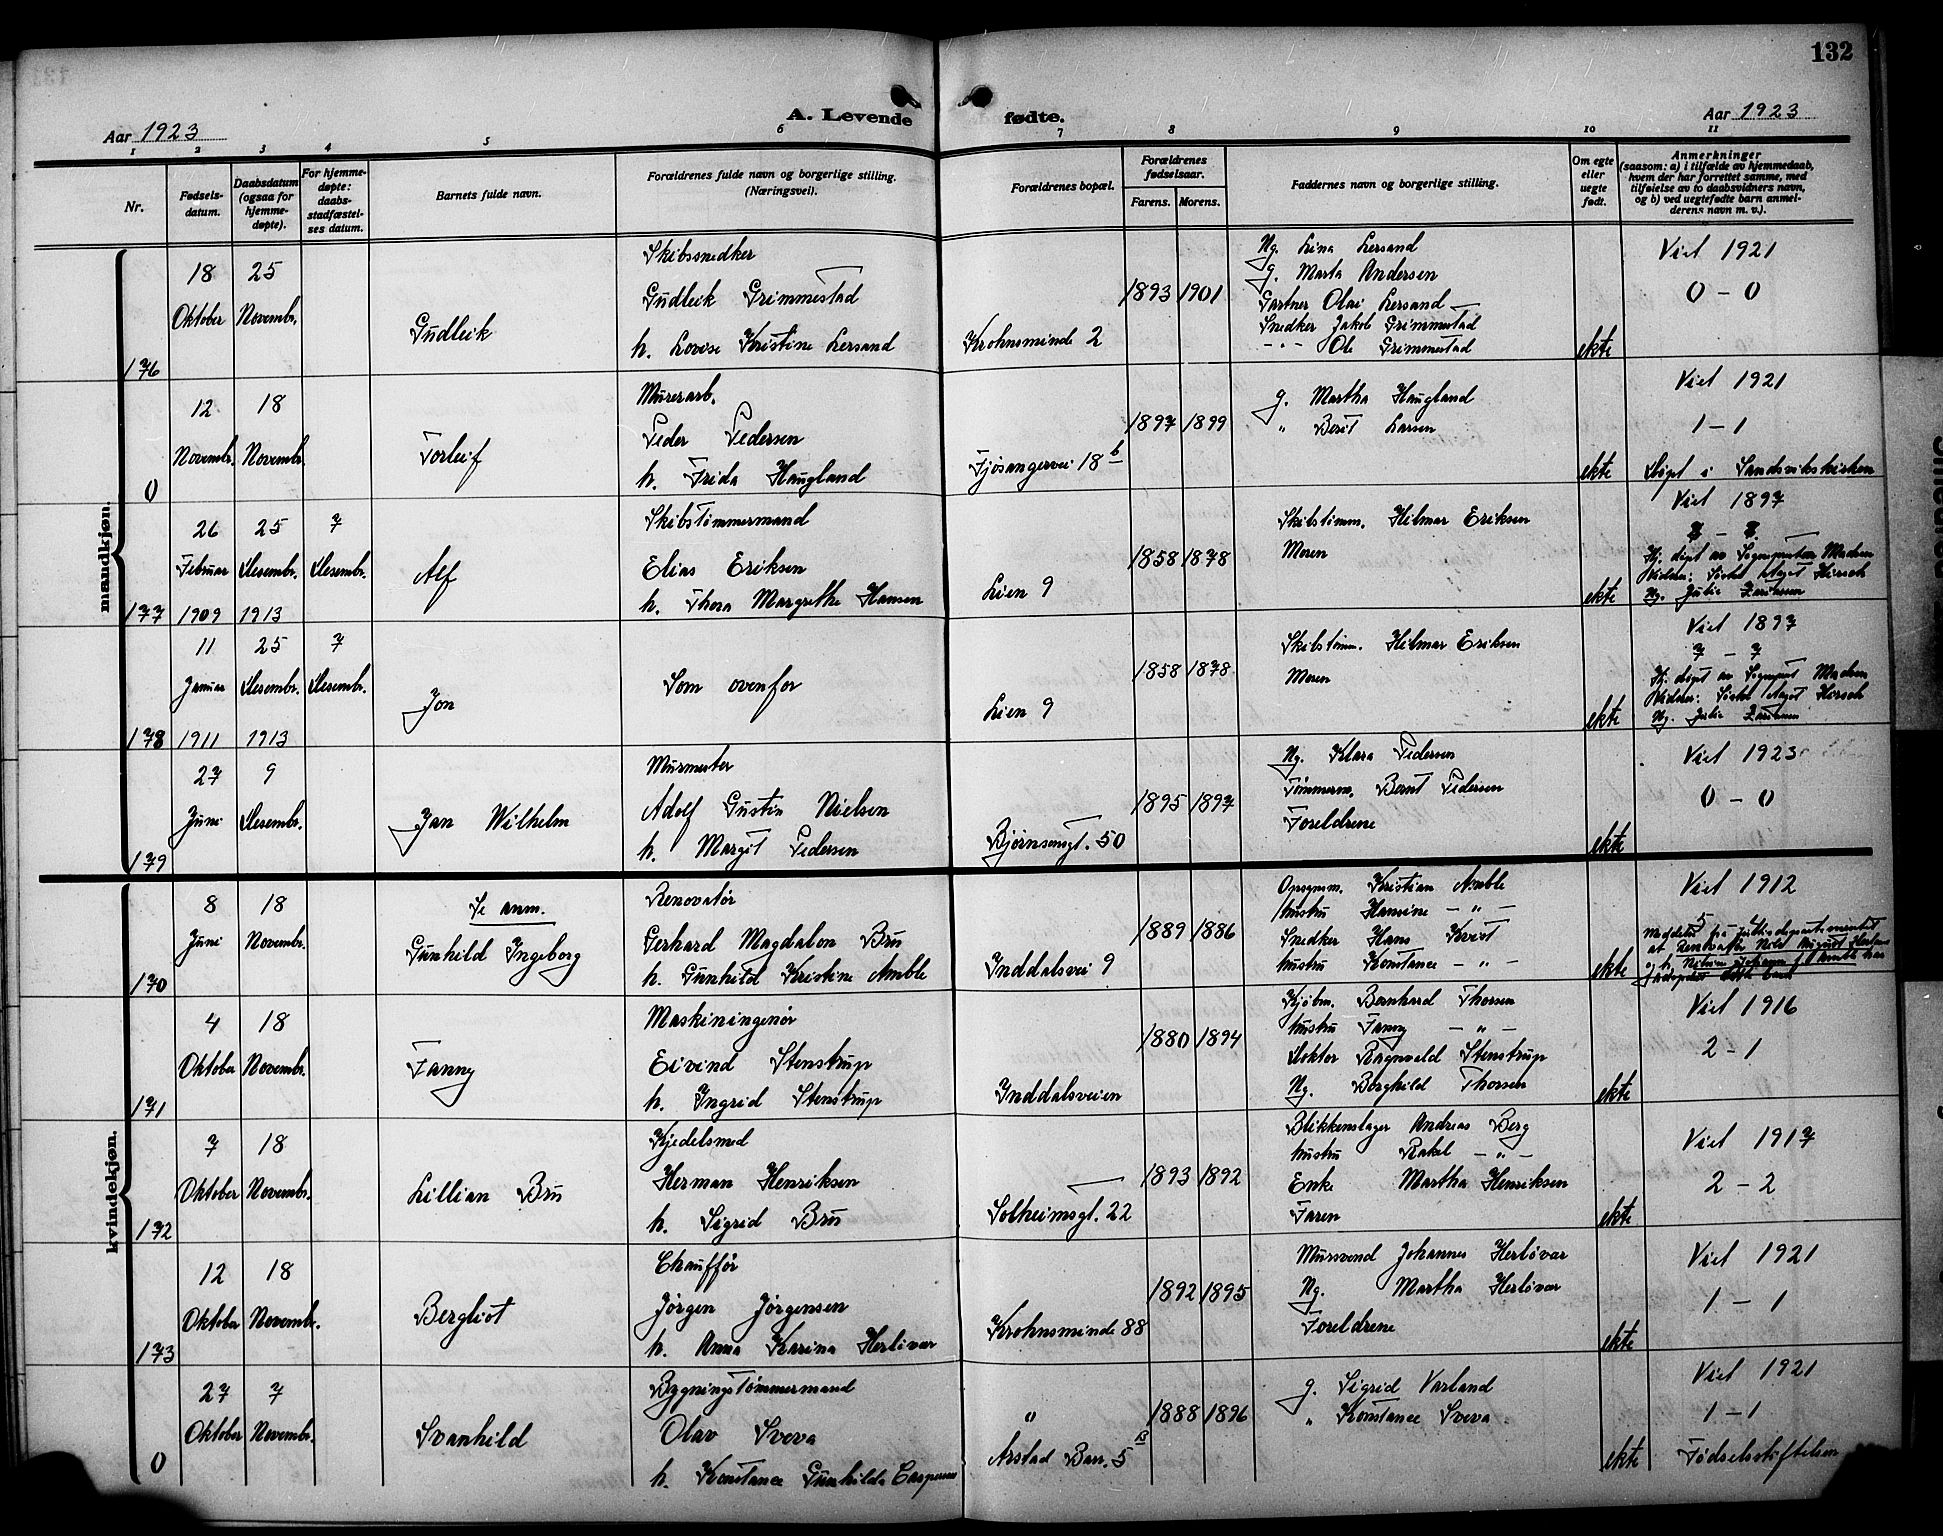 132
Aar 1923
A. Levende fødte.
Aar 1923
1 2 3 4 5 6 7 8 9 10 11
Nr.
Fødsels-
datum.
Daabsdatum
(ogsaa for
hjemme-
døpte).
For hjemme-
døpte:
daabs-
stadfæstel-
ses datum.
Barnets fulde navn.
Forældrenes fulde navn og borgerlige stilling.
(Næringsvei).
Forældrenes bopæl.
Forældrenes
fødselsaar.
Farens. Morens.
Faddernes navn og borgerlige stilling.
Om egte
eller
uegte
født.
Anmerkninger
(saasom: a) i tilfælde av hjemmedaab,
hvem der har forrettet samme, med
tilføielse av to daabsvidners navn,
og b) ved uegtefødte barn anmel-
derens navn m. v.).
mandkjøn.
176
18
Oktober
25
Novembr.
Gudleik
Skibssnedker
Gudleik Grimmestad
h. Lovise Kristine Lersand
Krohnsminde 2
1893 1901
Ng. Lina Lersand
g. Marta Andersen
Gartner Olai Lersand
Snedker Jakob Grimmestad
- - - Ole Grimmestad
ekte
Viet 1921
0 - 0
0
12
Novembr.
18
Novembr.
Torleif
Murerarb.
Peder Pedersen
h. Frida Haugland
Fjøsangervei 18 b
1897 1899
g. Martha Haugland
" Berit Larsen
ekte
Viet 1921
1 - 1
Døpt i Sandvikskirken
177
26
Februar
1909
25
Desembr.
1913
7
Desembr.
Alf
Skibstømmermand
Elias Eriksen
h. Thora Margrethe Hansen
Lien 9
1858 1878
Skibstømm. Hilmar Eriksen
Moren
ekte
Viet 1897
Hj. døpt av Sogneprest Madsen
Vidner: Søster Aagot Hirsch
Ng. Julie
178
11
Januar
1911
25
Desembr.
1913
7
Desembr.
Jon
Som ovenfor
Lien 9
1858 1878
Skibstømm. Hilmar Eriksen
Moren
ekte
Viet 1897
7 - 7
Hj. døpt av Sognepr. Madsen
Vidner: Søster Aagot Hirsch
Ng. Julie
179
27
Juni
9
Desembr.
Jan Wilhelm
Murmester
Adolf Gustin Nielsen
h. Margit Pedersen
Bjørnsonsgt. 50
1895 1897
Ng. Klara Pedersen
Tømmerm. Bernt Pedersen
Foreldrene
ekte
Viet 1923
0 - 0
kvindekjøn.
170
8
Juni
18
Novembr.
Se anm.
Gunhild Ingeborg
Renovatør
Gerhard Magdalon Bru
h. Gunhild Kristine Amble
Inddalsvei 9
1889 1886
Opsynsm. Kristian Amble
hustru Hansine - " -
Snedker Hans Kvist
hustru Konstance - " -
ekte
Viet 1912
5
Meddelt fra justisdepartementet
at Renovatør Nols August
171
4
Oktober
18
Novembr.
Fanny
Maskiningeniør
Eivind Stenstrup
h. Ingrid Stenstrup
Inddalsveien
1880 1894
Kjøbm. Bernhard Thorsen
hustru Fanny - " -
Doktor Ragnvald Stenstrup
Ng. Borghild Thorsen
ekte
Viet 1916
2 - 1
172
7
Oktober
18
Novembr.
Lillian Bru
Kjedelsmed
Herman Henriksen
h. Sigrid Bru
Solheimsgt. 22
1893 1892
Blikkenslager Andreas Berg
hustru Rakel - " -
Enke Martha Henriksen
Faren
ekte
Viet 1917
2 - 2
173
12
Oktober
18
Novembr.
Bergliot
Chauffør
Jørgen Jørgensen
h. Anna Karina Herløvar
Krohnsminde 88
1892 1895
Mursvend Johannes Herløvar
Ng. Martha Herløvar
Foreldrene
ekte
Viet 1921
1 - 1
0
27
Oktober
7
Novembr.
Svanhild
Bygningstømmermand
Olav Sveva
h. Konstance Gunhilda Caspersen
Arstad Barr. 5 B
1888 1896
g. Sigrid Varland
" Konstance Sveva
ekte
Viet 1921
1 - 1
Fødselsstiftelsen